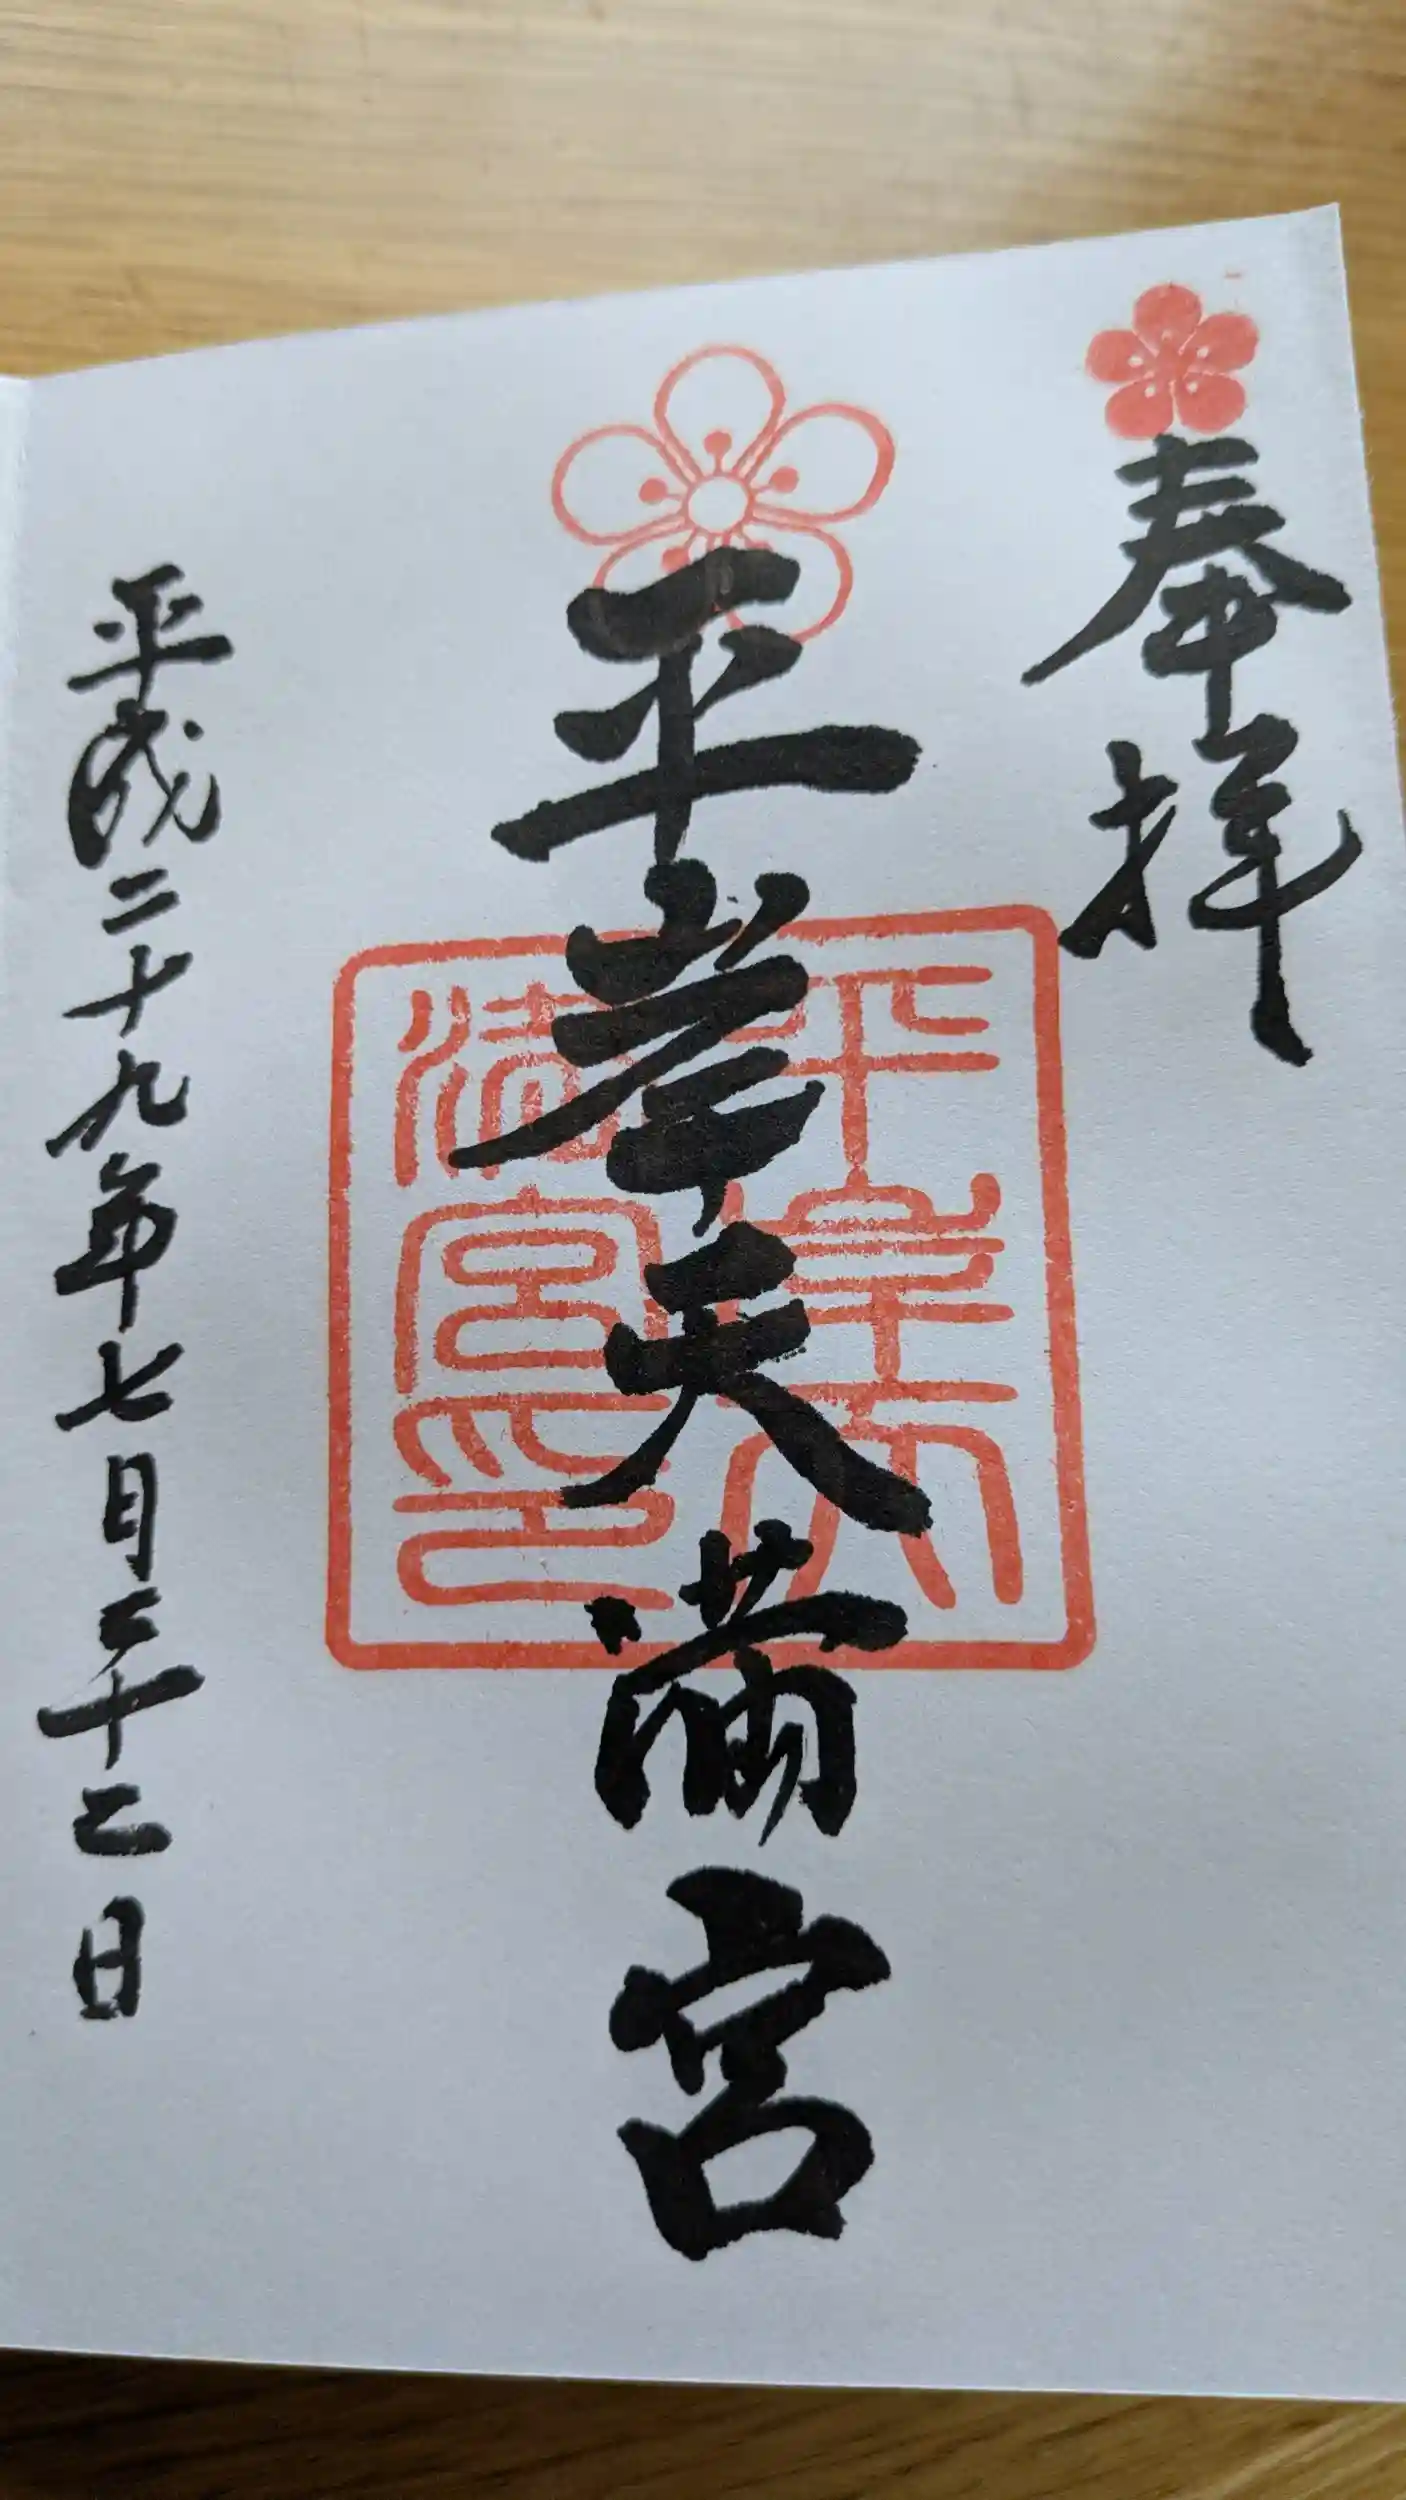 奉拝
平岸天満宮
平岸天満宮印
平成二十九年七月二十二日